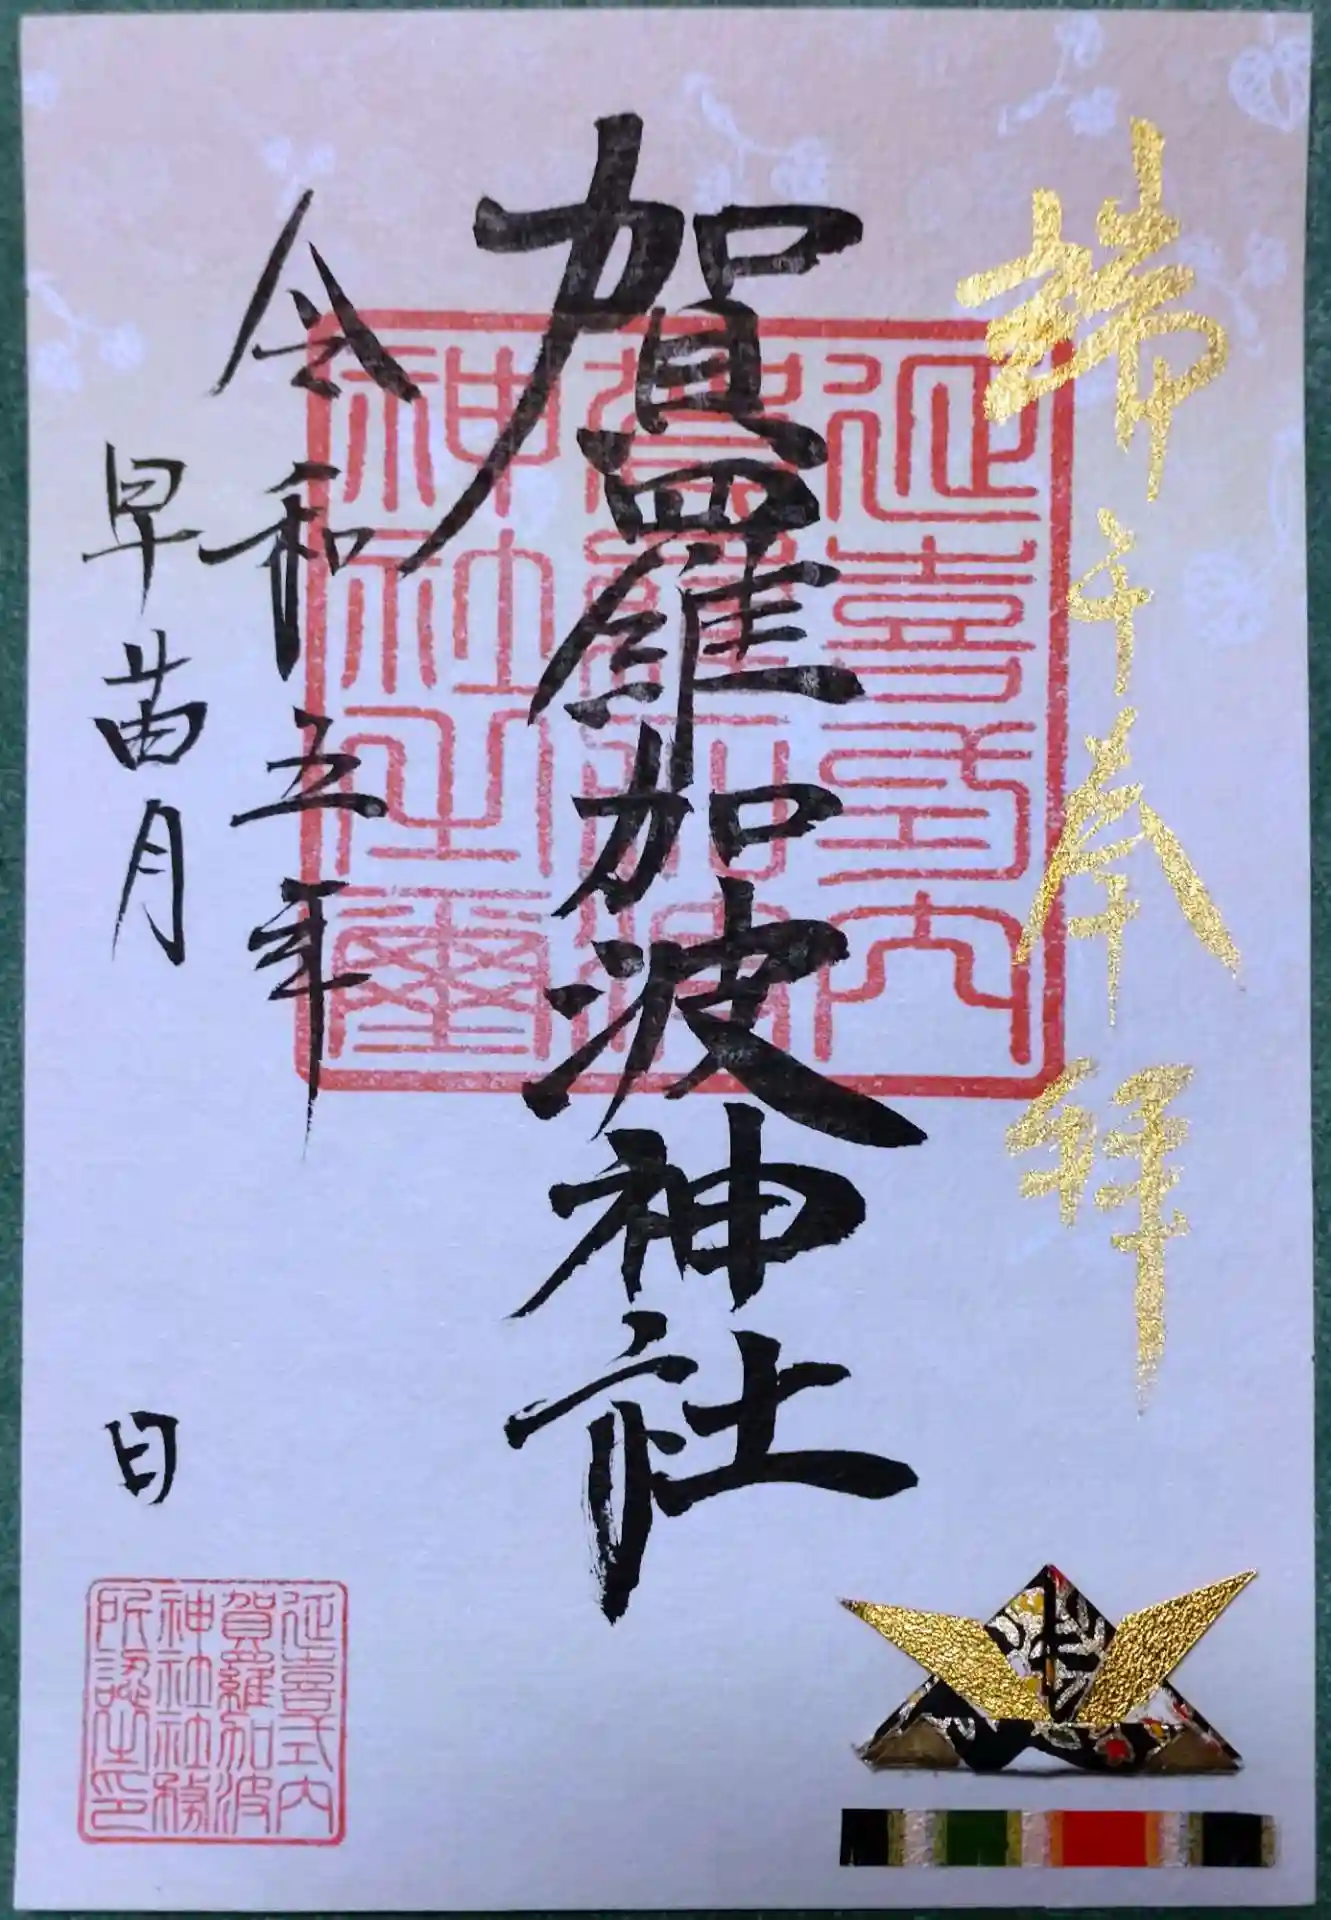 端午奉拝
賀羅加波神社
令和五年
早苗月 日
延喜式内
賀羅加波
神社之璽
延喜式内
賀羅加波
神社社務
所認之印